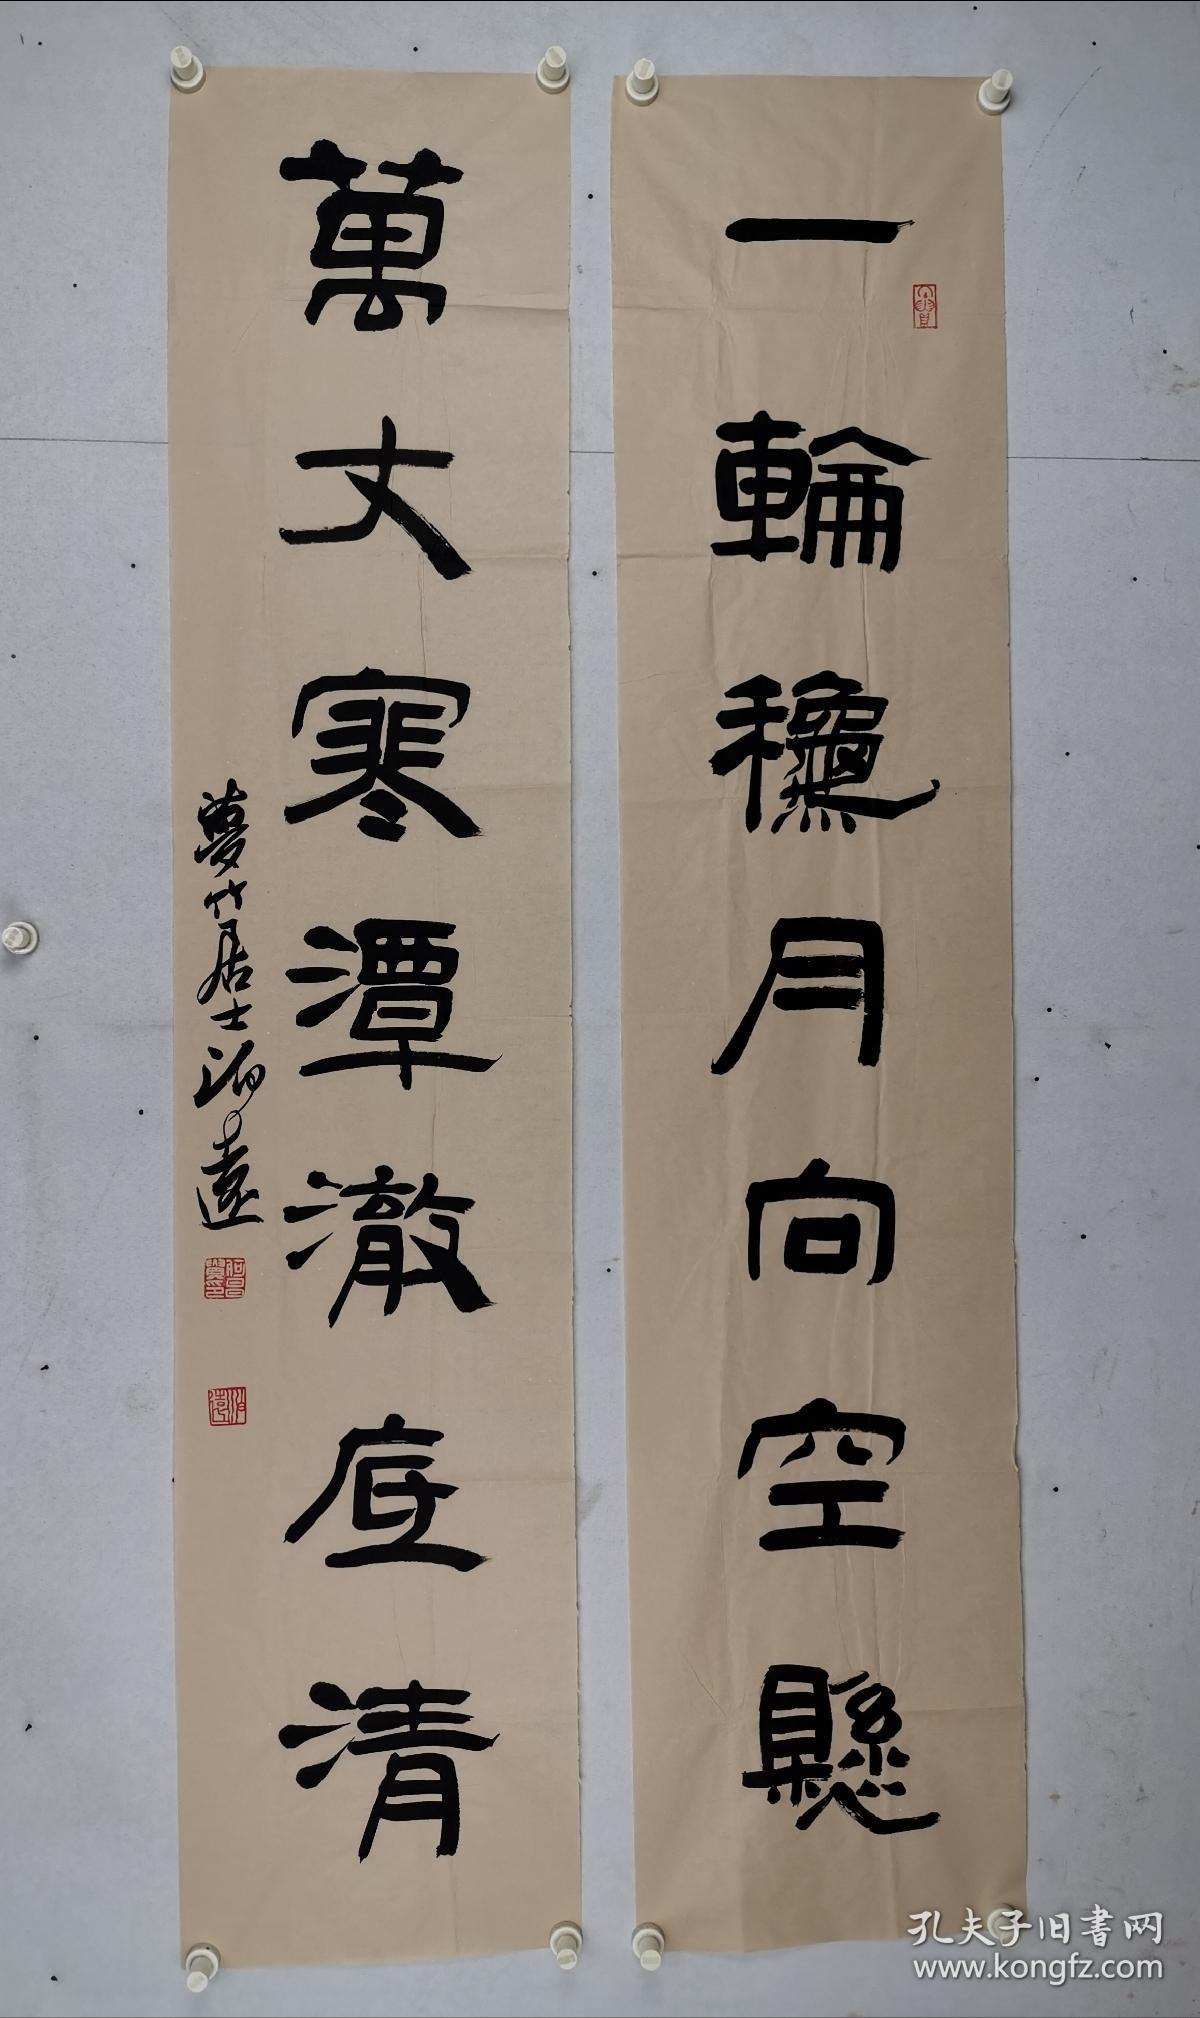 一輪龝月向空懸
萬丈寒潭澈底清
夢竹居士治遠
孔夫子旧書网
www.kongfz.com